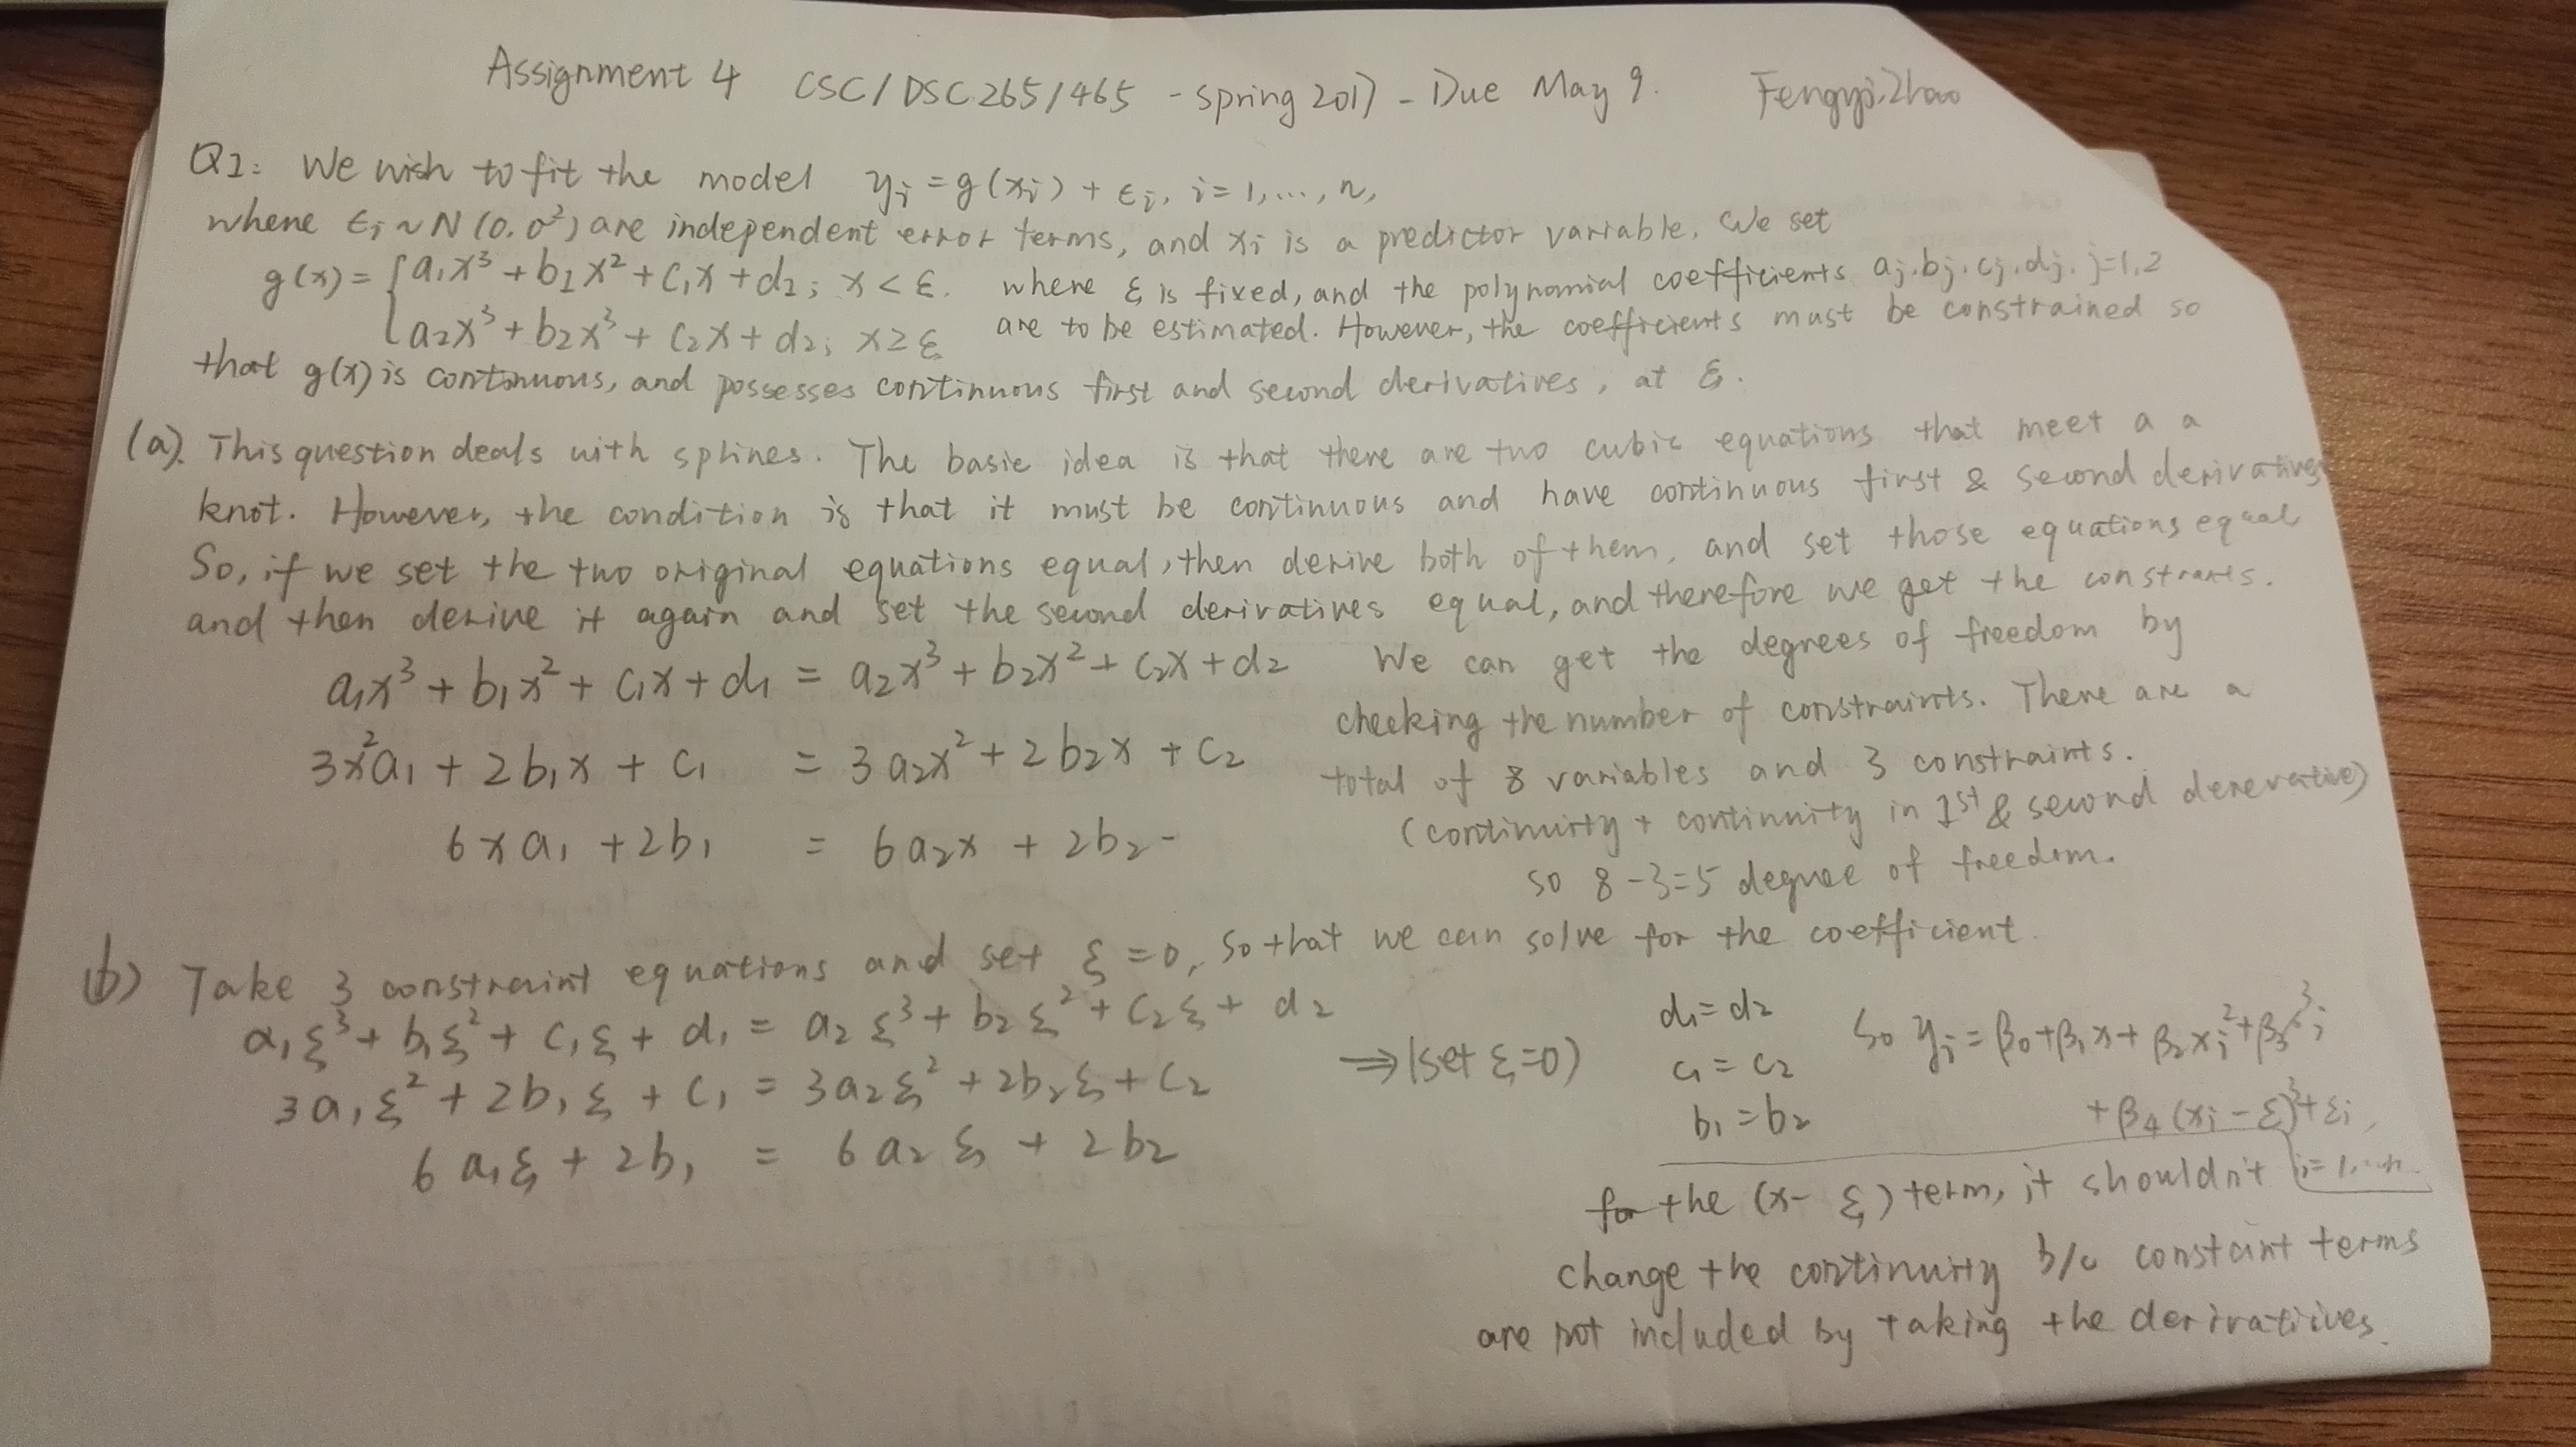 Assignment 4 CSC/DSC 265/465 - spring 2017 - Due May 9. Fengyi Zhao
Q1: We wish to fit the model yi = g(xi) + εi, i = 1, ..., n,
where εi ~ N(0, σ²) are independent error terms, and xi is a predictor variable. We set
g(x) = { a1x³ + b1x² + c1x + d2; x < ξ. where ξ is fixed, and the polynomial coefficients aj, bj, cj, dj, j=1,2
a2x³ + b2x³ + c2x + d2; x ≥ ξ are to be estimated. However, the coefficients must be constrained so
that g(x) is continuous, and possesses continuous first and second derivatives, at ξ.
(a). This question deals with splines. The basic idea is that there are two cubic equations that meet a a
knot. However, the condition is that it must be continuous and have continuous first & second derivatives
So, if we set the two original equations equal, then derive both of them, and set those equations equal
and then derive it again and set the second derivatives equal, and therefore we get the constraints.
a1x³ + b1x² + c1x + d1 = a2x³ + b2x² + c2x + d2 We can get the degrees of freedom by
checking the number of constraints. There are a
3x²a1 + 2b1x + c1 = 3a2x² + 2b2x + c2
total of 8 variables and 3 constraints.
(continuity + continuity in 1st & second derevative)
6xa1 + 2b1 = 6a2x + 2b2 -
so 8-3=5 degree of freedom.
(b) Take 3 constraint equations and set ξ = 0, so that we can solve for the coefficient.
a1ξ³ + b1ξ² + c1ξ + d1 = a2ξ³ + b2ξ² + c2ξ + d2
3a1ξ² + 2b1ξ + c1 = 3a2ξ² + 2b2ξ + c2
6a1ξ + 2b1 = 6a2ξ + 2b2
⇒ (set ξ=0)
d1 = d2
c1 = c2
b1 = b2
So yi = β0 + β1x + β2xi² + β3 ³i
+ β4(xi - ξ)³ + εi,
i = 1, ... n
for the (x - ξ) term, it shouldn't
change the continuity b/c constaint terms
are not included by taking the derivatiives.